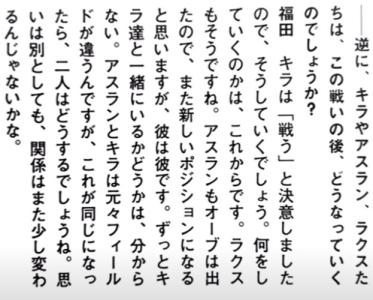 ――逆に、キラやアスラン、ラクスた
ちは、この戦いの後、どうなっていく
のでしょうか？
福田　キラは「戦う」と決意しました
ので、そうしていくでしょう。何をし
ていくのかは、これからです。ラクス
もそうですね。アスランもオーブは出
たので、また新しいポジションになる
と思いますが、彼は彼です。ずっとキ
ラ達と一緒にいるかどうかは、分から
ない。アスランとキラは元々フィール
ドが違うんですが、これが同じになっ
たら、二人はどうするでしょうね。思
いは別としても、関係はまた少し変わ
るんじゃないかな。